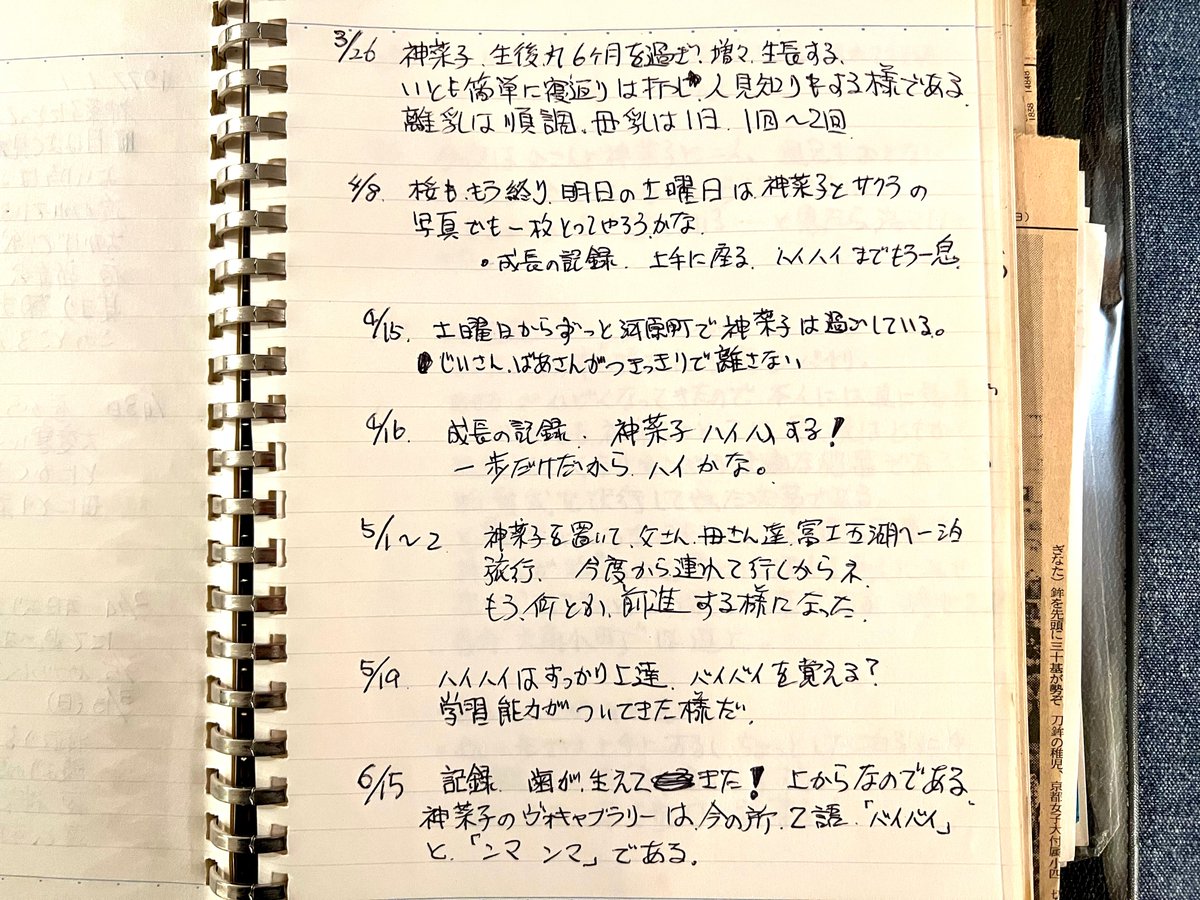 3/26 神菜子.生後丸6ケ月を過ぎ?増々生長する.
いとも簡単に寝返りは打つし人見知りをする様である.
離乳は順調.母乳は1日.1回〜2回
4/8. 桜も.もう終り.明日の土曜日は.神菜子とサクラの
写真でも一枚とってやろうかな.
・成長の記録. 上手に座る. ハイハイまでもう一息.
4/15. 土曜日からずっと河原町で神菜子は過ごしている。
じいさん.ばあさんがつきっきりで離さない
4/16 成長の記録. 神菜子ハイハイする!
一歩だけだから.ハイかな。
5/1〜2 神菜子を置いて.父さん.母さん達.富士五湖へ一泊
旅行. 今度から連れて行くからネ.
もう.何とか.前進する様になった.
5/19. ハイハイはすっかり上達. バイバイを覚える?
学習能力がついてきた様だ.
6/15 記録. 歯が.生えてきた! 上からなのである.
神菜子のヴォキャブラリーは.今の所.2語.「バイバイ」
と.「ンマ ンマ」である.
ぎなた)鉾を先頭に三十基が勢ぞ
刀鉾の稚児、京都女子大付属小四
1977